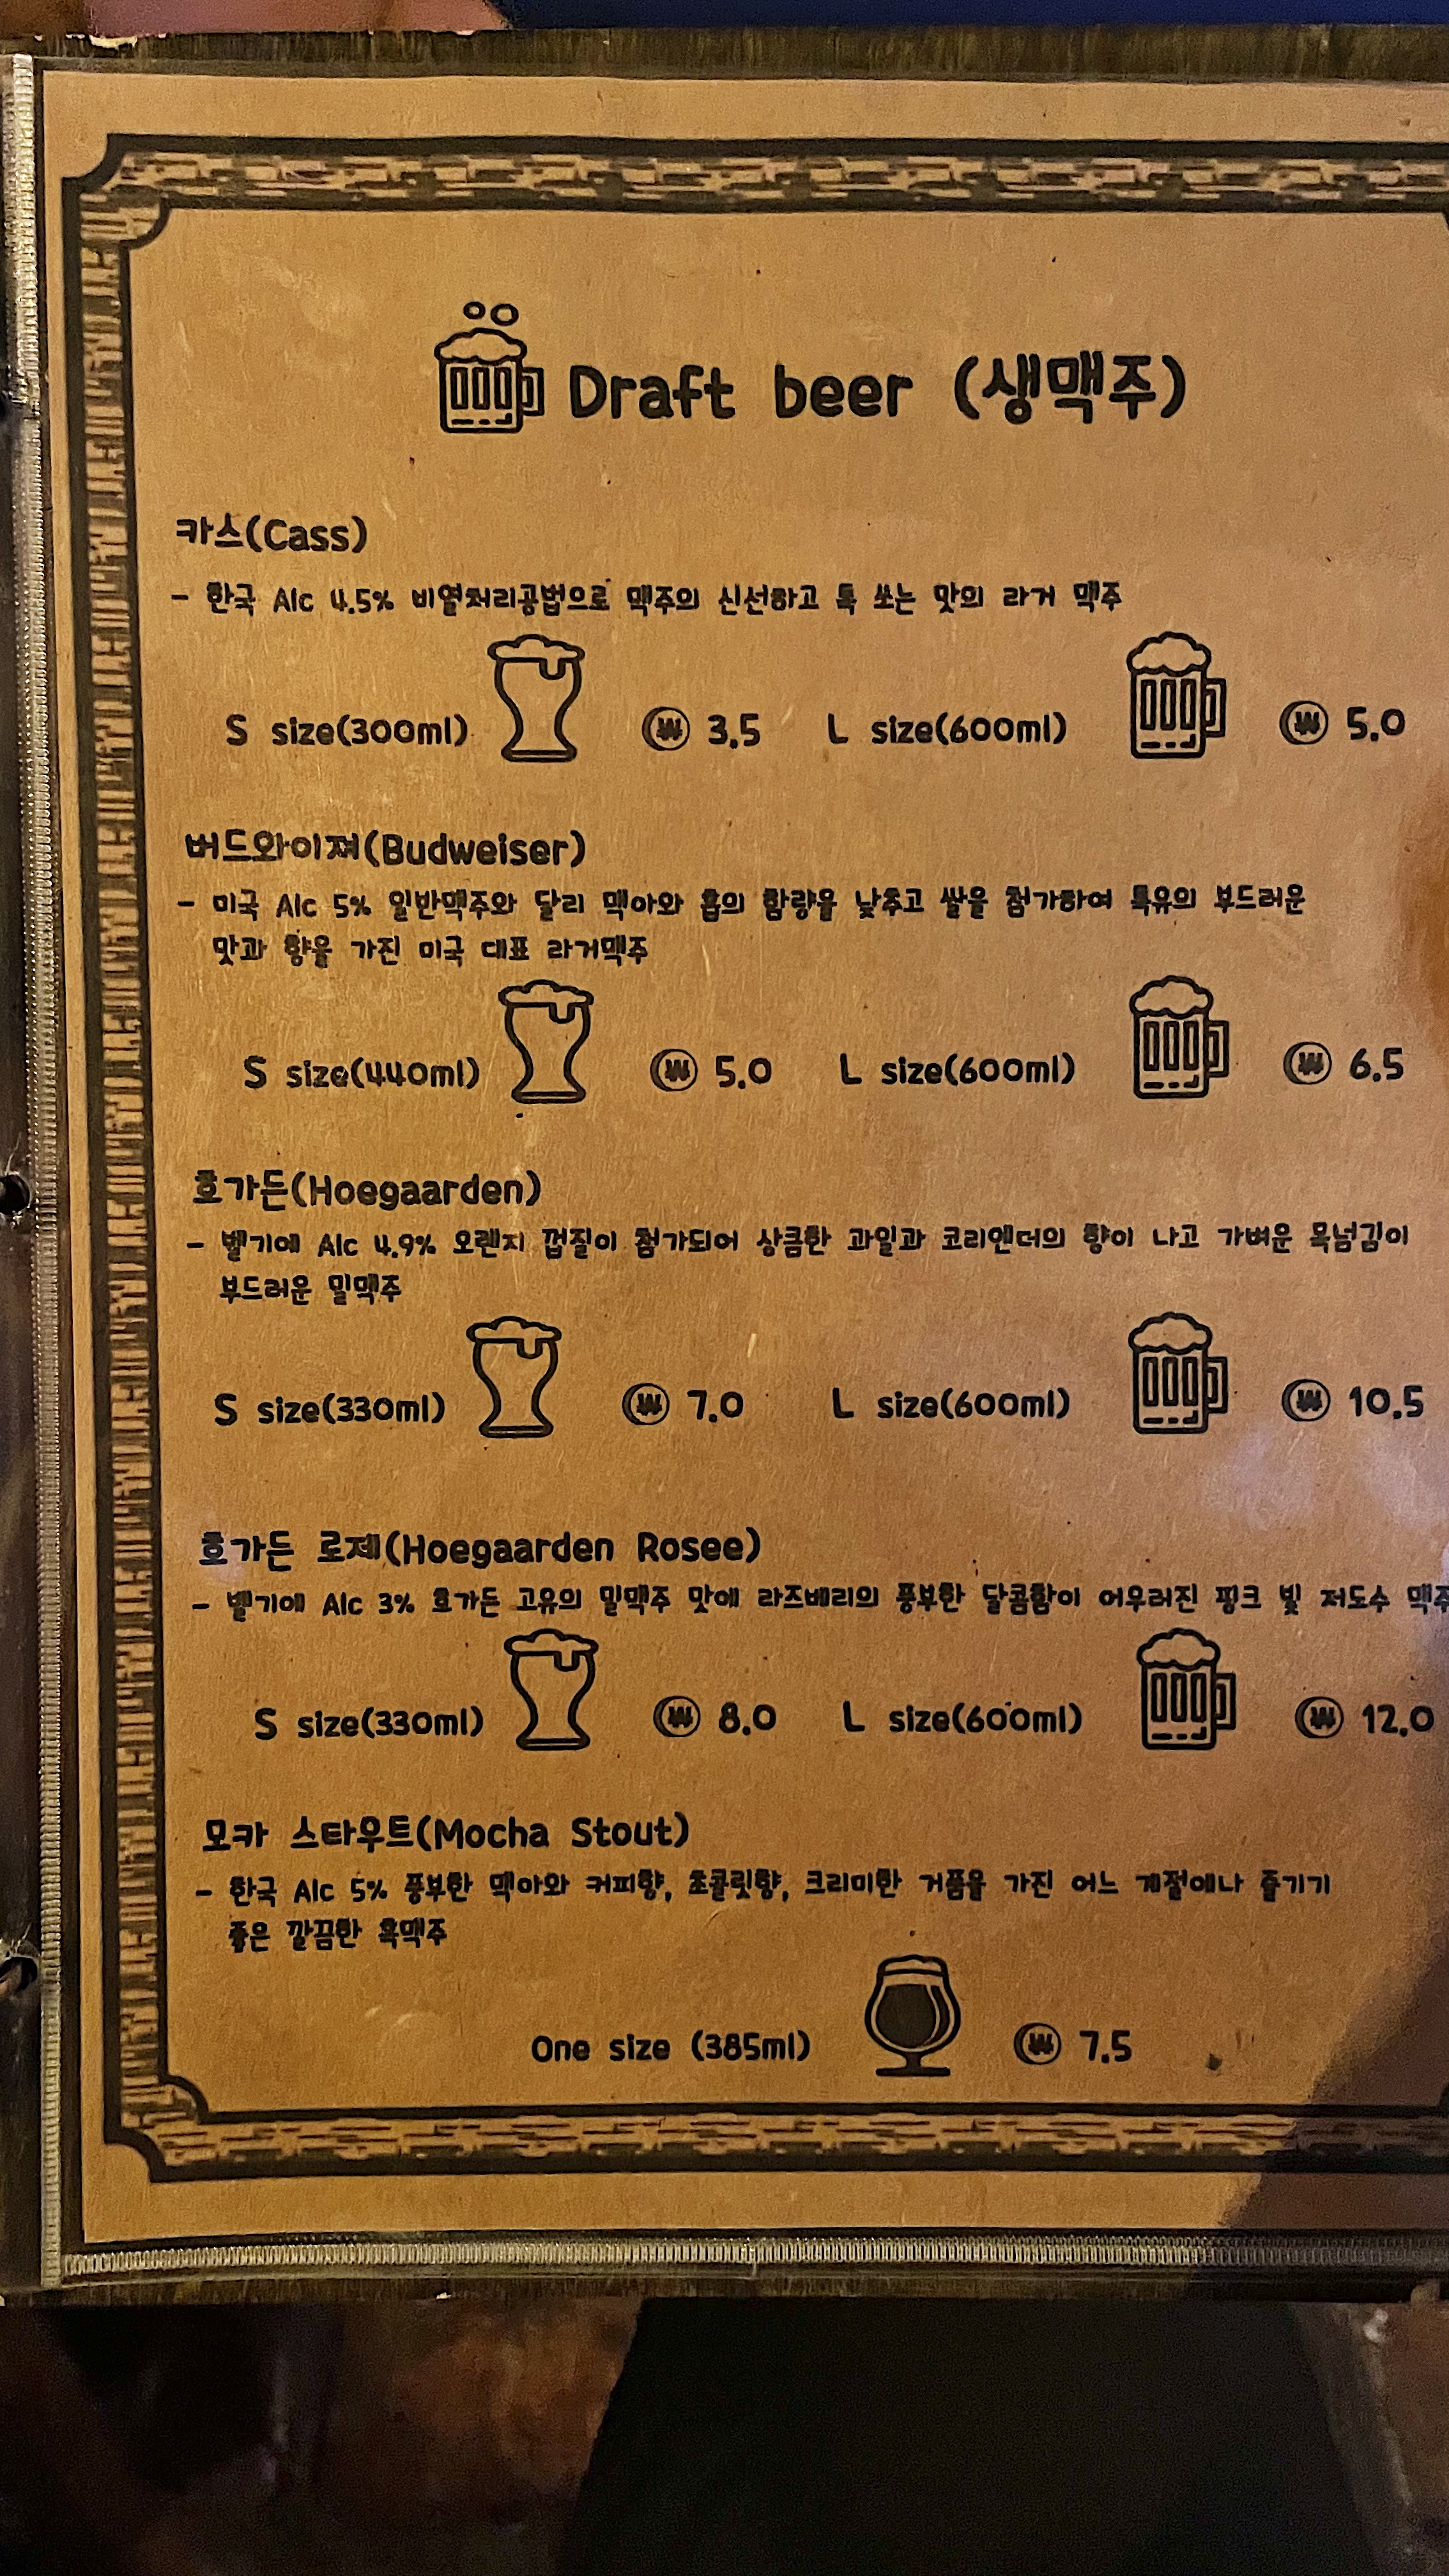 Draft beer (생맥주)
카스(Cass)
- 한국 Alc 4.5% 비열처리공법으로 맥주의 신선하고 톡 쏘는 맛의 라거 맥주
S size(300ml) ₩ 3.5 L size(600ml) ₩ 5.0
버드와이져(Budweiser)
- 미국 Alc 5% 일반맥주와 달리 맥아와 홉의 함량을 낮추고 쌀을 첨가하여 특유의 부드러운
맛과 향을 가진 미국 대표 라거맥주
S size(440ml) ₩ 5.0 L size(600ml) ₩ 6.5
호가든(Hoegaarden)
- 벨기에 Alc 4.9% 오렌지 껍질이 첨가되어 상큼한 과일과 코리엔더의 향이 나고 가벼운 목넘김이
부드러운 밀맥주
S size(330ml) ₩ 7.0 L size(600ml) ₩ 10.5
호가든 로제(Hoegaarden Rosee)
- 벨기에 Alc 3% 호가든 고유의 밀맥주 맛에 라즈베리의 풍부한 달콤함이 어우러진 핑크 빛 저도수 맥주
S size(330ml) ₩ 8.0 L size(600ml) ₩ 12.0
모카 스타우트(Mocha Stout)
- 한국 Alc 5% 풍부한 맥아와 커피향, 초콜릿향, 크리미한 거품을 가진 어느 계절에나 즐기기
좋은 깔끔한 흑맥주
One size (385ml) ₩ 7.5